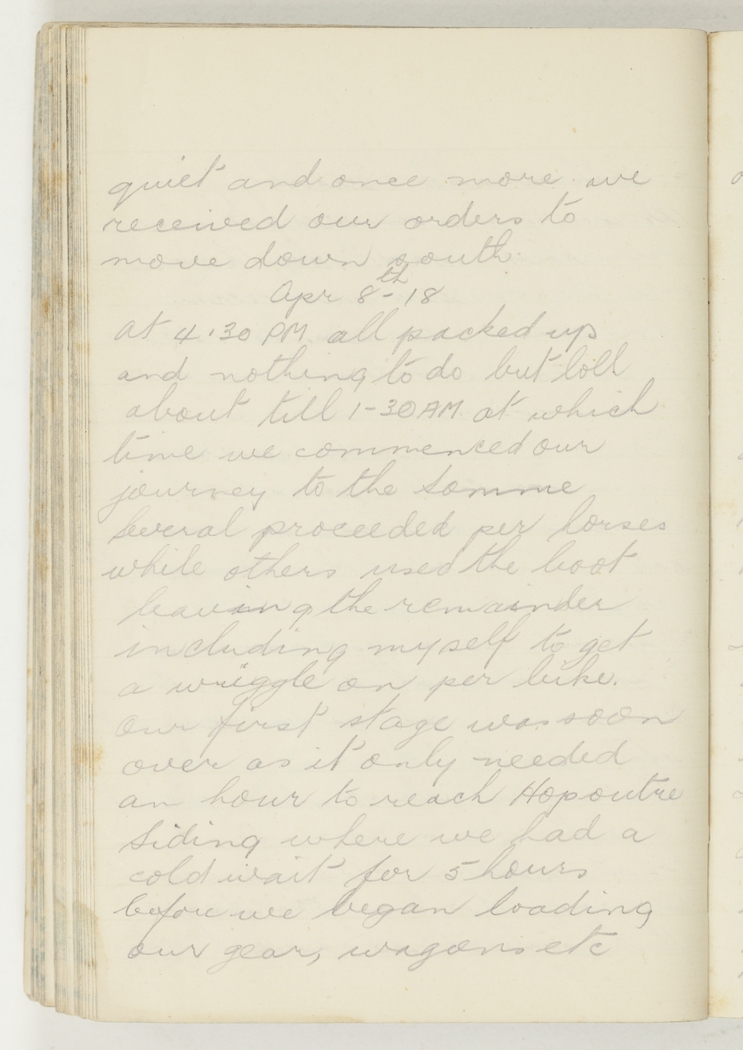 quiet and once more we
received our orders to
move down south.
Apr 8th - 18
at 4.30 PM all packed up
and nothing to do but loll
about till 1-30 AM at which
time we commenced our
journey to the Somme
Several proceeded per horses
while others used the boot
leaving the remainder
including myself to get
a wriggle on per bike.
Our first stage was soon
over as it only needed
an hour to reach Hopoutre
Siding where we had a
cold wait for 5 hours
before we began loading
our gear, wagons etc